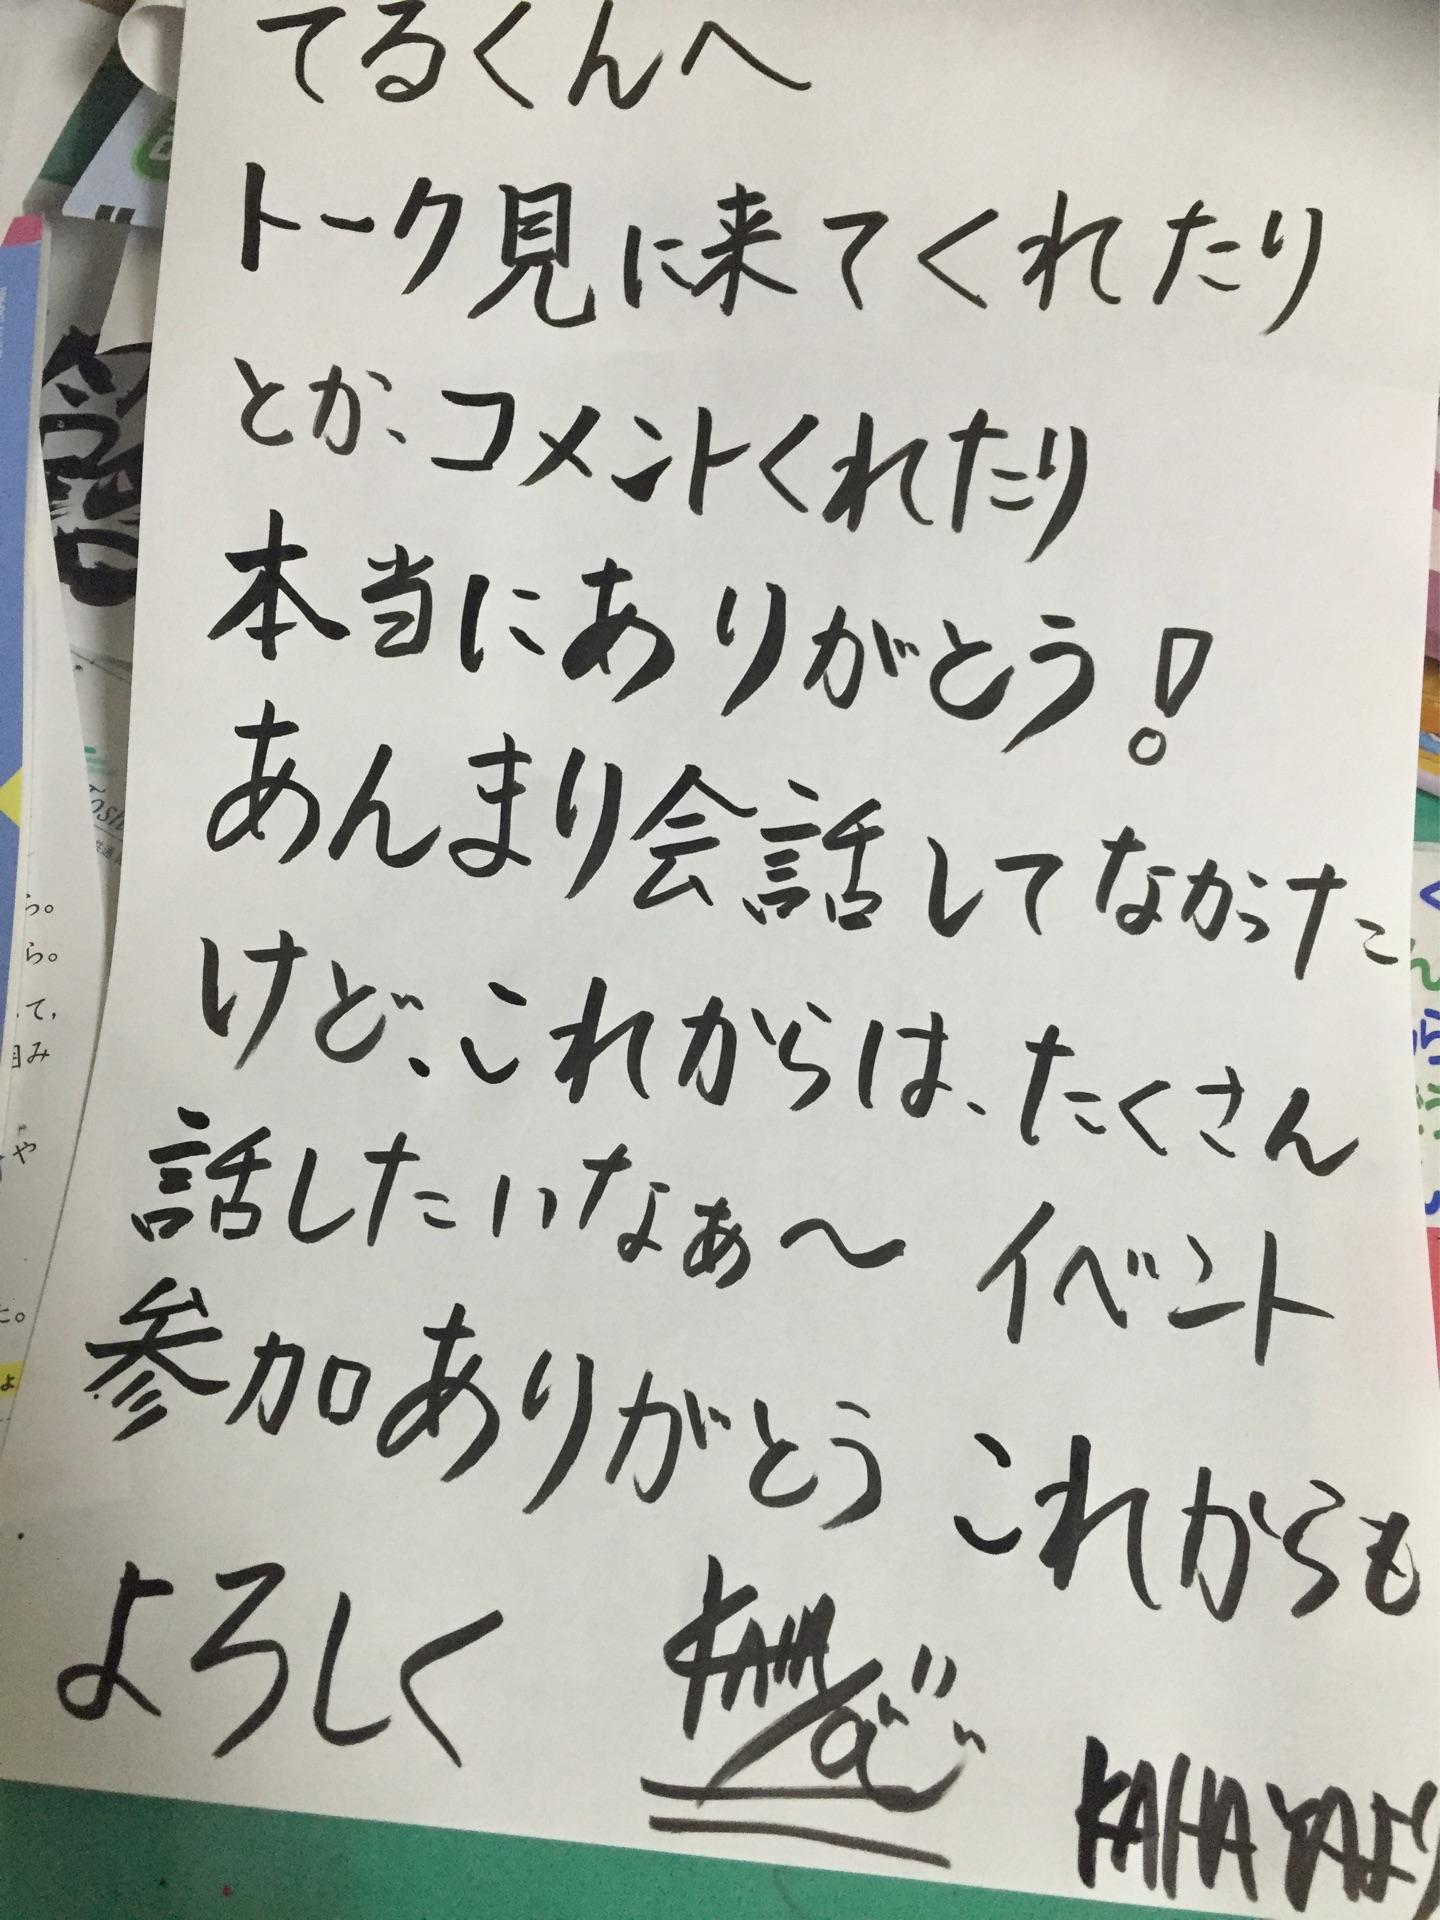 てるくんへ
トーク見に来てくれたり
とか、コメントくれたり
本当にありがとう!
あんまり会話してなかった
けど、これからは、たくさん
話したいなぁ〜 イベント
参加ありがとう これからも
よろしく
KAHAYAより
ら。
ら。
て,
み
や